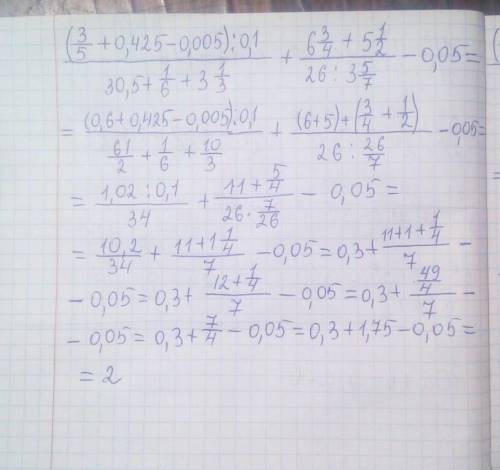 ((3/5 + 0,425 - 0,005) : 0,1) / (30,5 + 1/6 + 3 1/3) + (6 3/4 + 5 1/2) / (26 : 3 5/7) - 0,05 =
= ((0,6 + 0,425 - 0,005) : 0,1) / (61/2 + 1/6 + 10/3) + ((6+5) + (3/4 + 1/2)) / (26 : 26/7) - 0,05 =
= (1,02 : 0,1) / 34 + (11 + 5/4) / (26 · 7/26) - 0,05 =
= 10,2/34 + (11 + 1 1/4) / 7 - 0,05 = 0,3 + (11 + 1 + 1/4) / 7 -
- 0,05 = 0,3 + (12 + 1/4) / 7 - 0,05 = 0,3 + (49/4) / 7 -
- 0,05 = 0,3 + 7/4 - 0,05 = 0,3 + 1,75 - 0,05 =
= 2